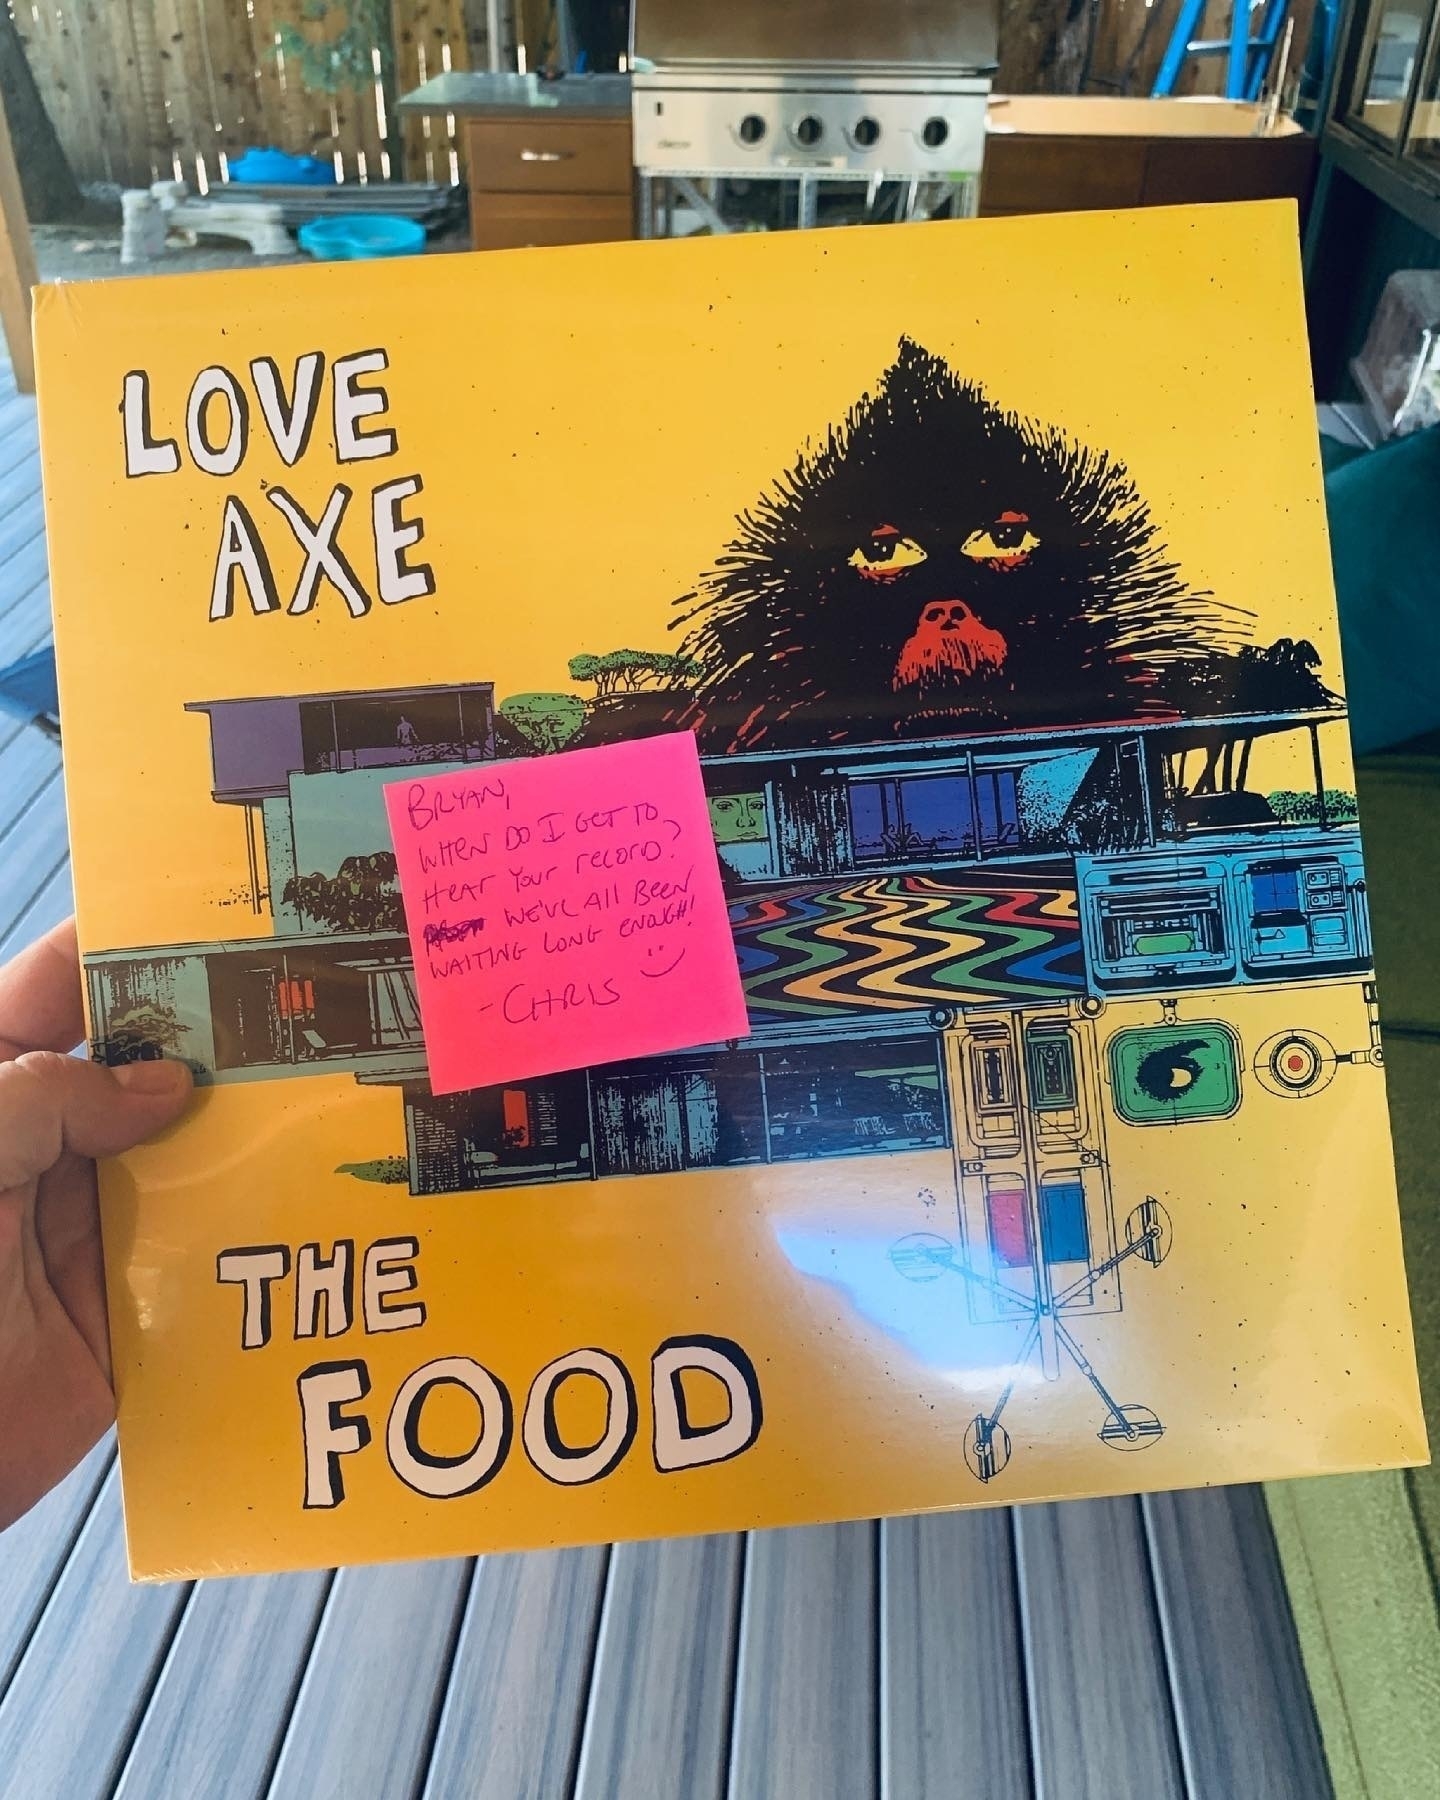 LOVE
AXE
BRYAN,
WHEN DO I GET TO
HEAR YOUR RECORD?
WE'VE ALL BEEN
WAITING LONG ENOUGH!
- CHRIS
THE
FOOD